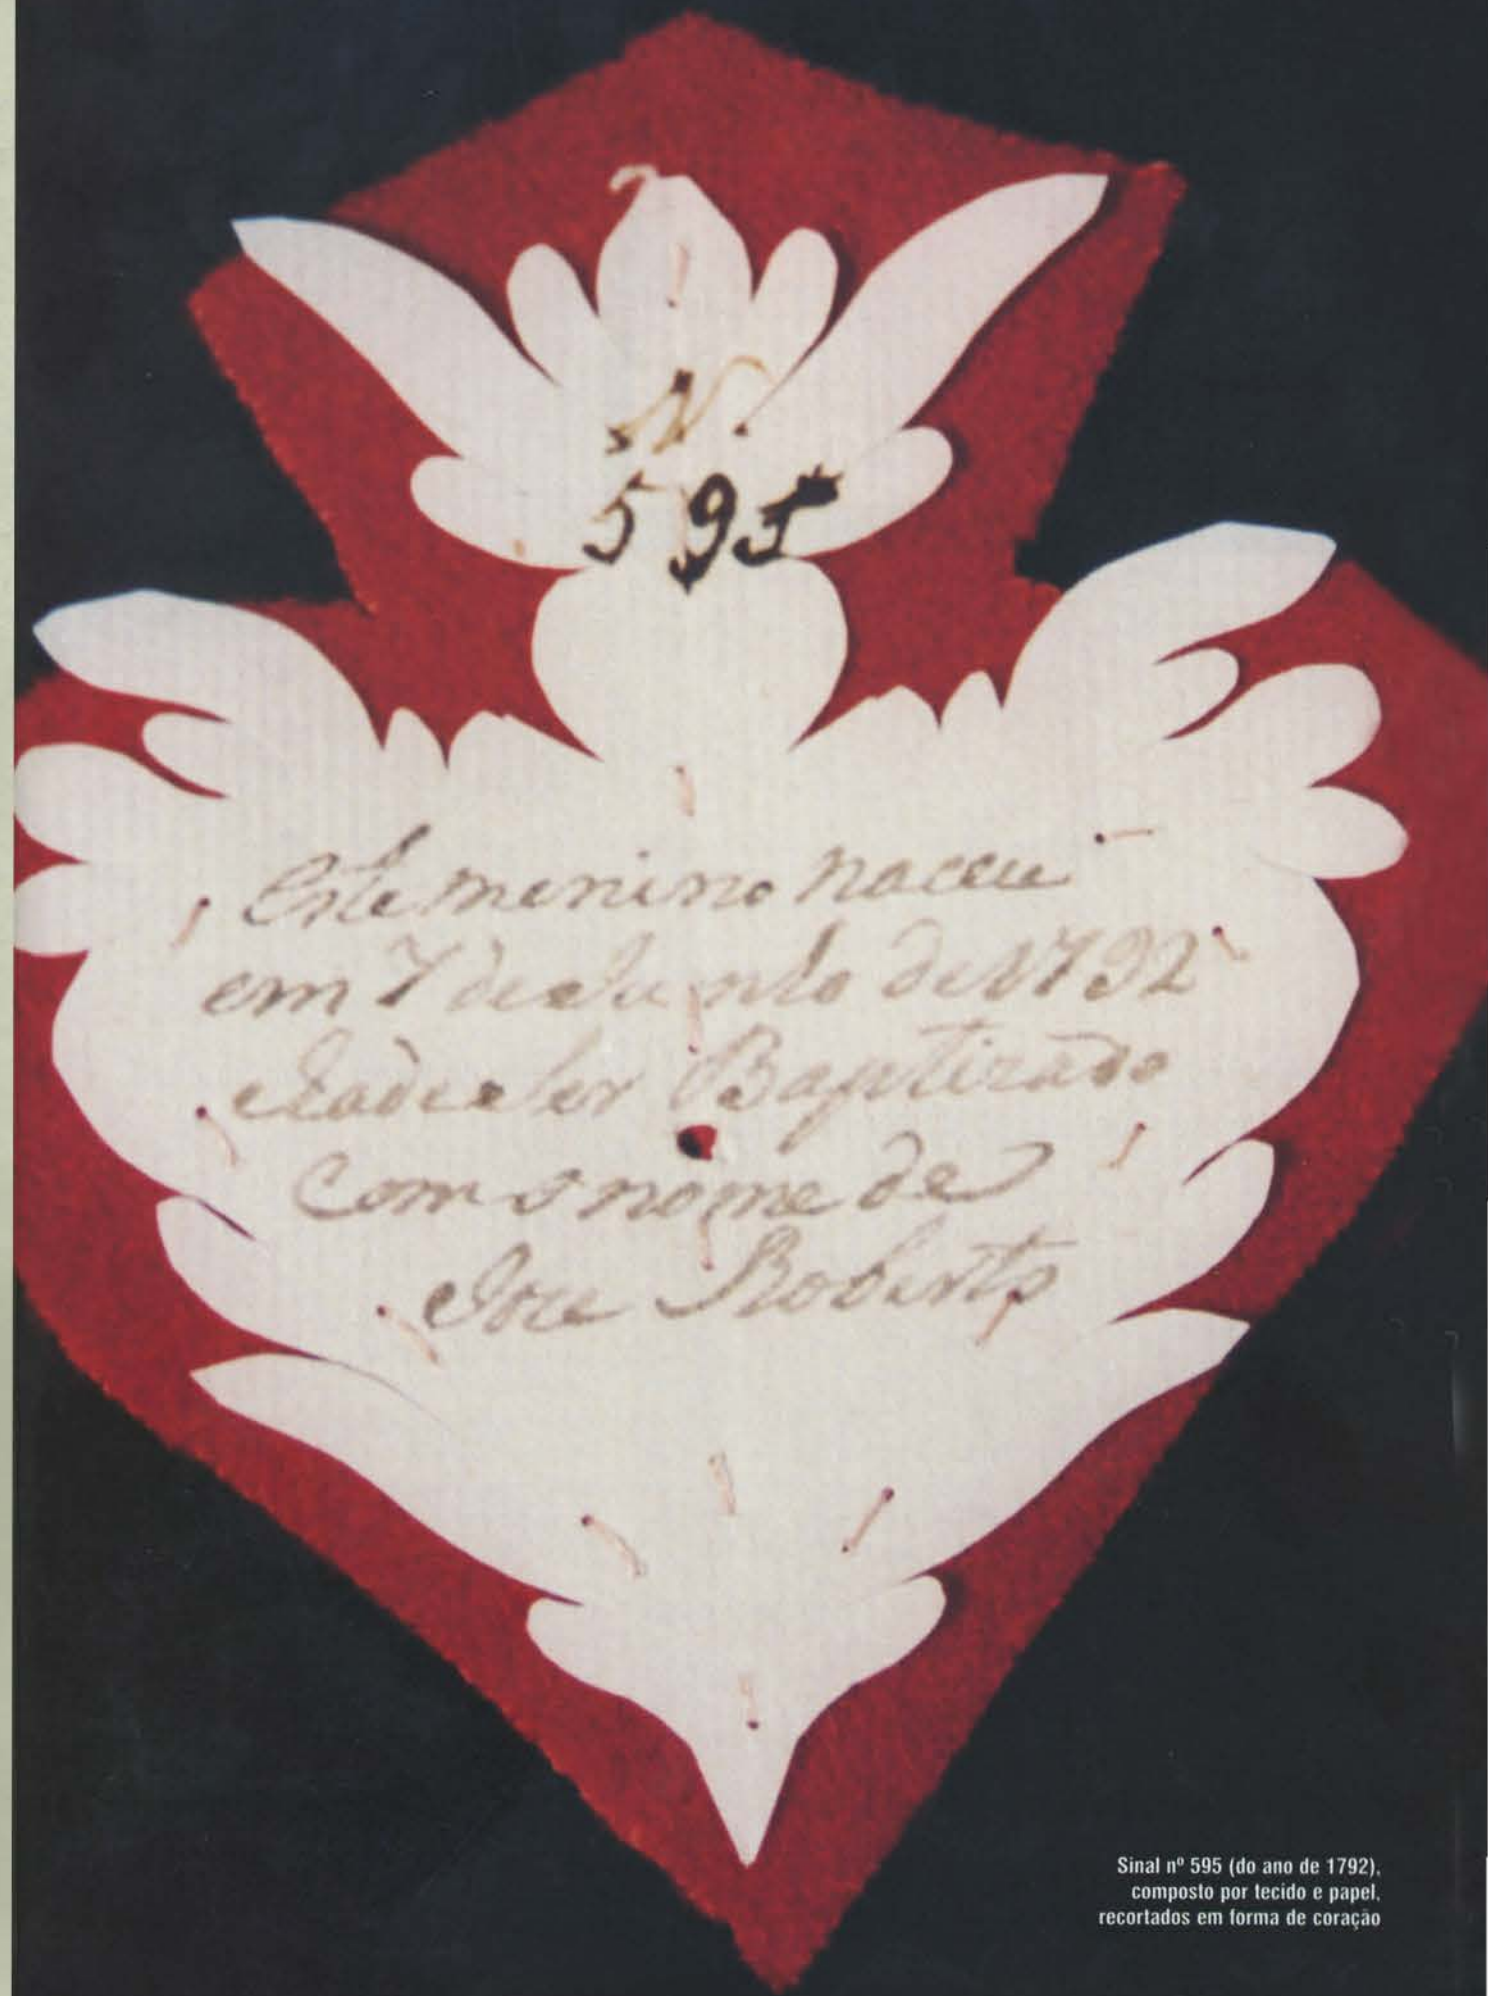 N.
595
Este menino naceu
em 7 de Junho de 1792
hade ser Baptizado
com o nome de
Joze Roberto
Sinal nº 595 (do ano de 1792),
composto por tecido e papel,
recortados em forma de coração